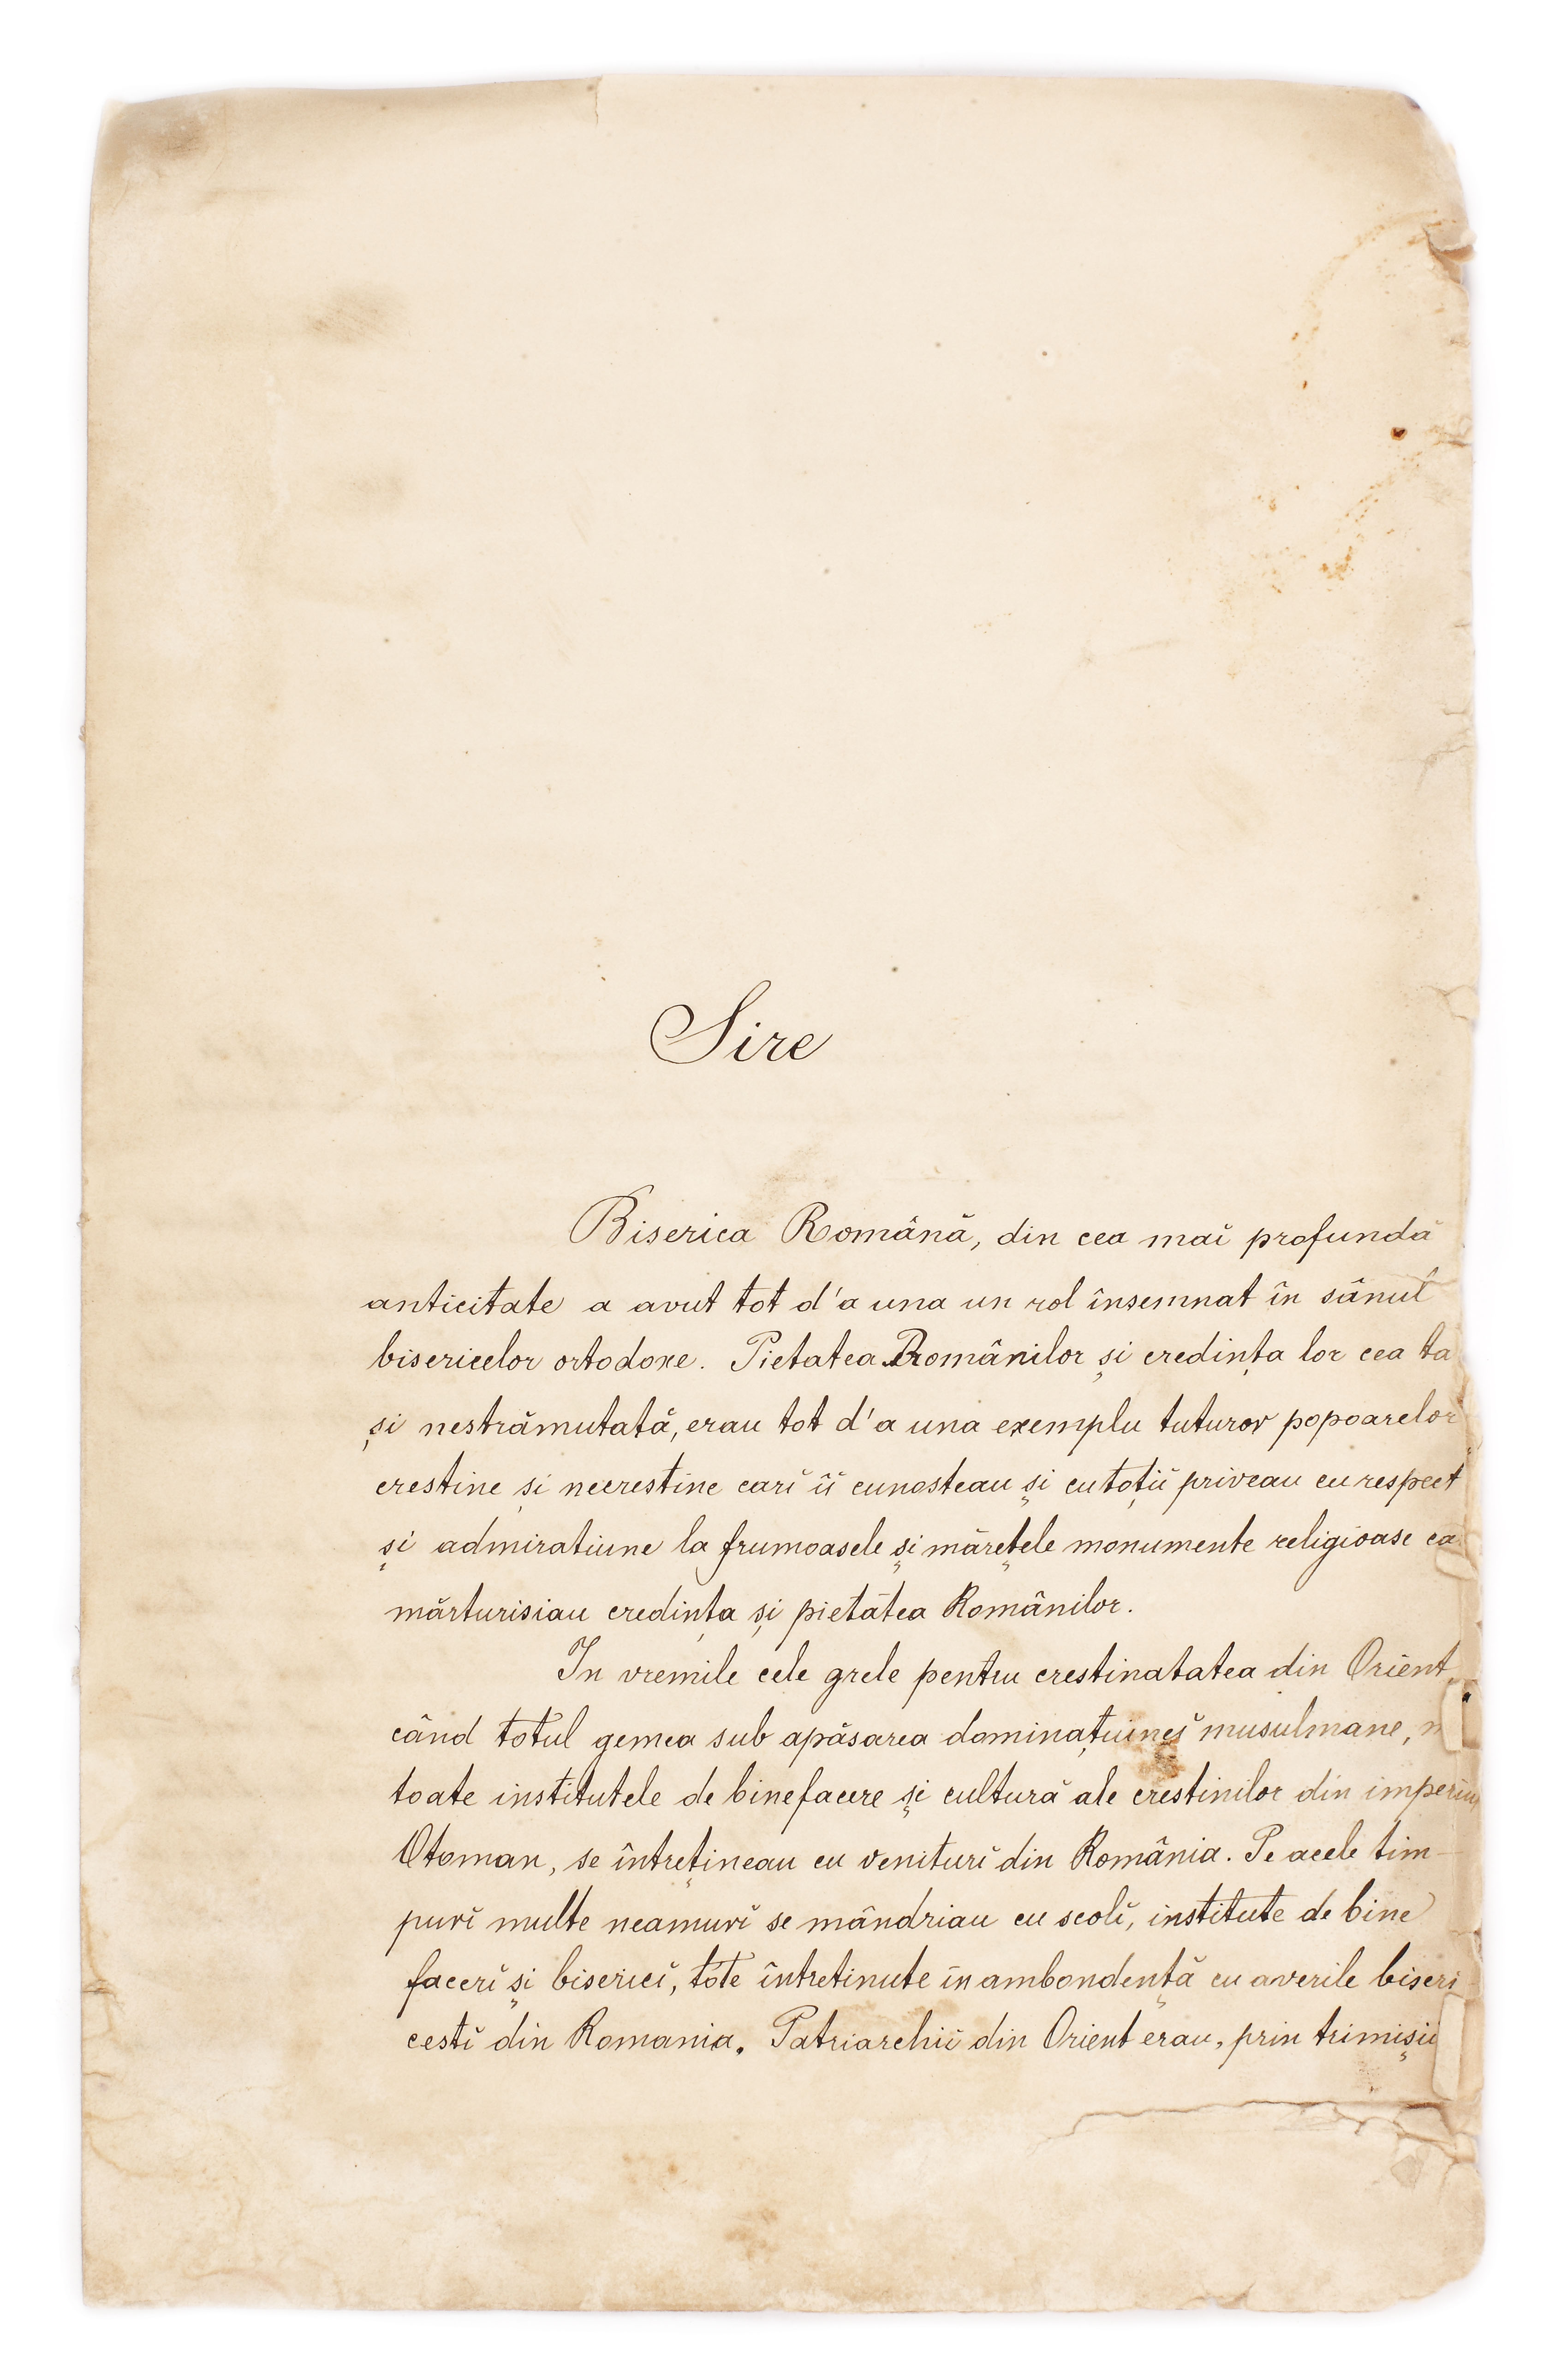 Sire
Biserica Română, din cea mai profundă
anticitate a avut tot d'a una un rol însemnat în sânul
bisericelor ortodoxe. Pietatea Românilor și credința lor cea ta
și nestrămutată, erau tot d'a una exemplu tuturor popoarelor
crestine și necrestine cari îi cunosteau și cu toții priveau cu respect
și admiratiune la frumoasele și mărețele monumente religioase ca
mărturisiau credința și pietatea Românilor.
In vremile cele grele pentru crestinatatea din Orient
când totul gemea sub apăsarea dominațiunei musulmane,
toate institutele de binefacere și cultură ale crestinilor din imperiu
Otoman, se întrețineau cu venituri din România. Pe acele tim-
purĭ multe neamurĭ se mândriau cu scolĭ, institute de bine
facerĭ și bisericĭ, tóte întretinute in ambondență cu averile biseri
cestĭ din Romania. Patriarchiĭ din Orient erau, prin trimișiĭ